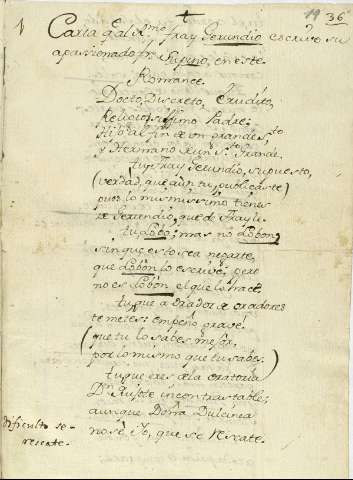 19 36
1 Carta q.e al R.mo Fray Gerundio escrive su
apasionado Fr. Supino, en este
Romance.
Docto, Discreto, Erudito,
Religiosissimo Padre:
Hijo al fin de un grande S.to
y Hermano de un S.to Grande.
tu, Fray Gerundio, supuesto,
(verdad, que aun tu publicaste)
pues lo mismissimo tienes
de Gerundio, que de Frayle.
tu, Lobo; mas no Lobon;
aunque esto sea negarte,
que Lobon lo escrive, pero
no es Lobon el que lo hace.
tu, que a orador de oradores
te metes: empeño grave.
(que tu lo sabes mejor,
por lo mismo que tu sabes.)
tu, que eres de la oratoria
D.n Quijote incontrastable;
aunque Doña Dulcinea
no sè Yo, que se rescate.
dificulto se
rescate.